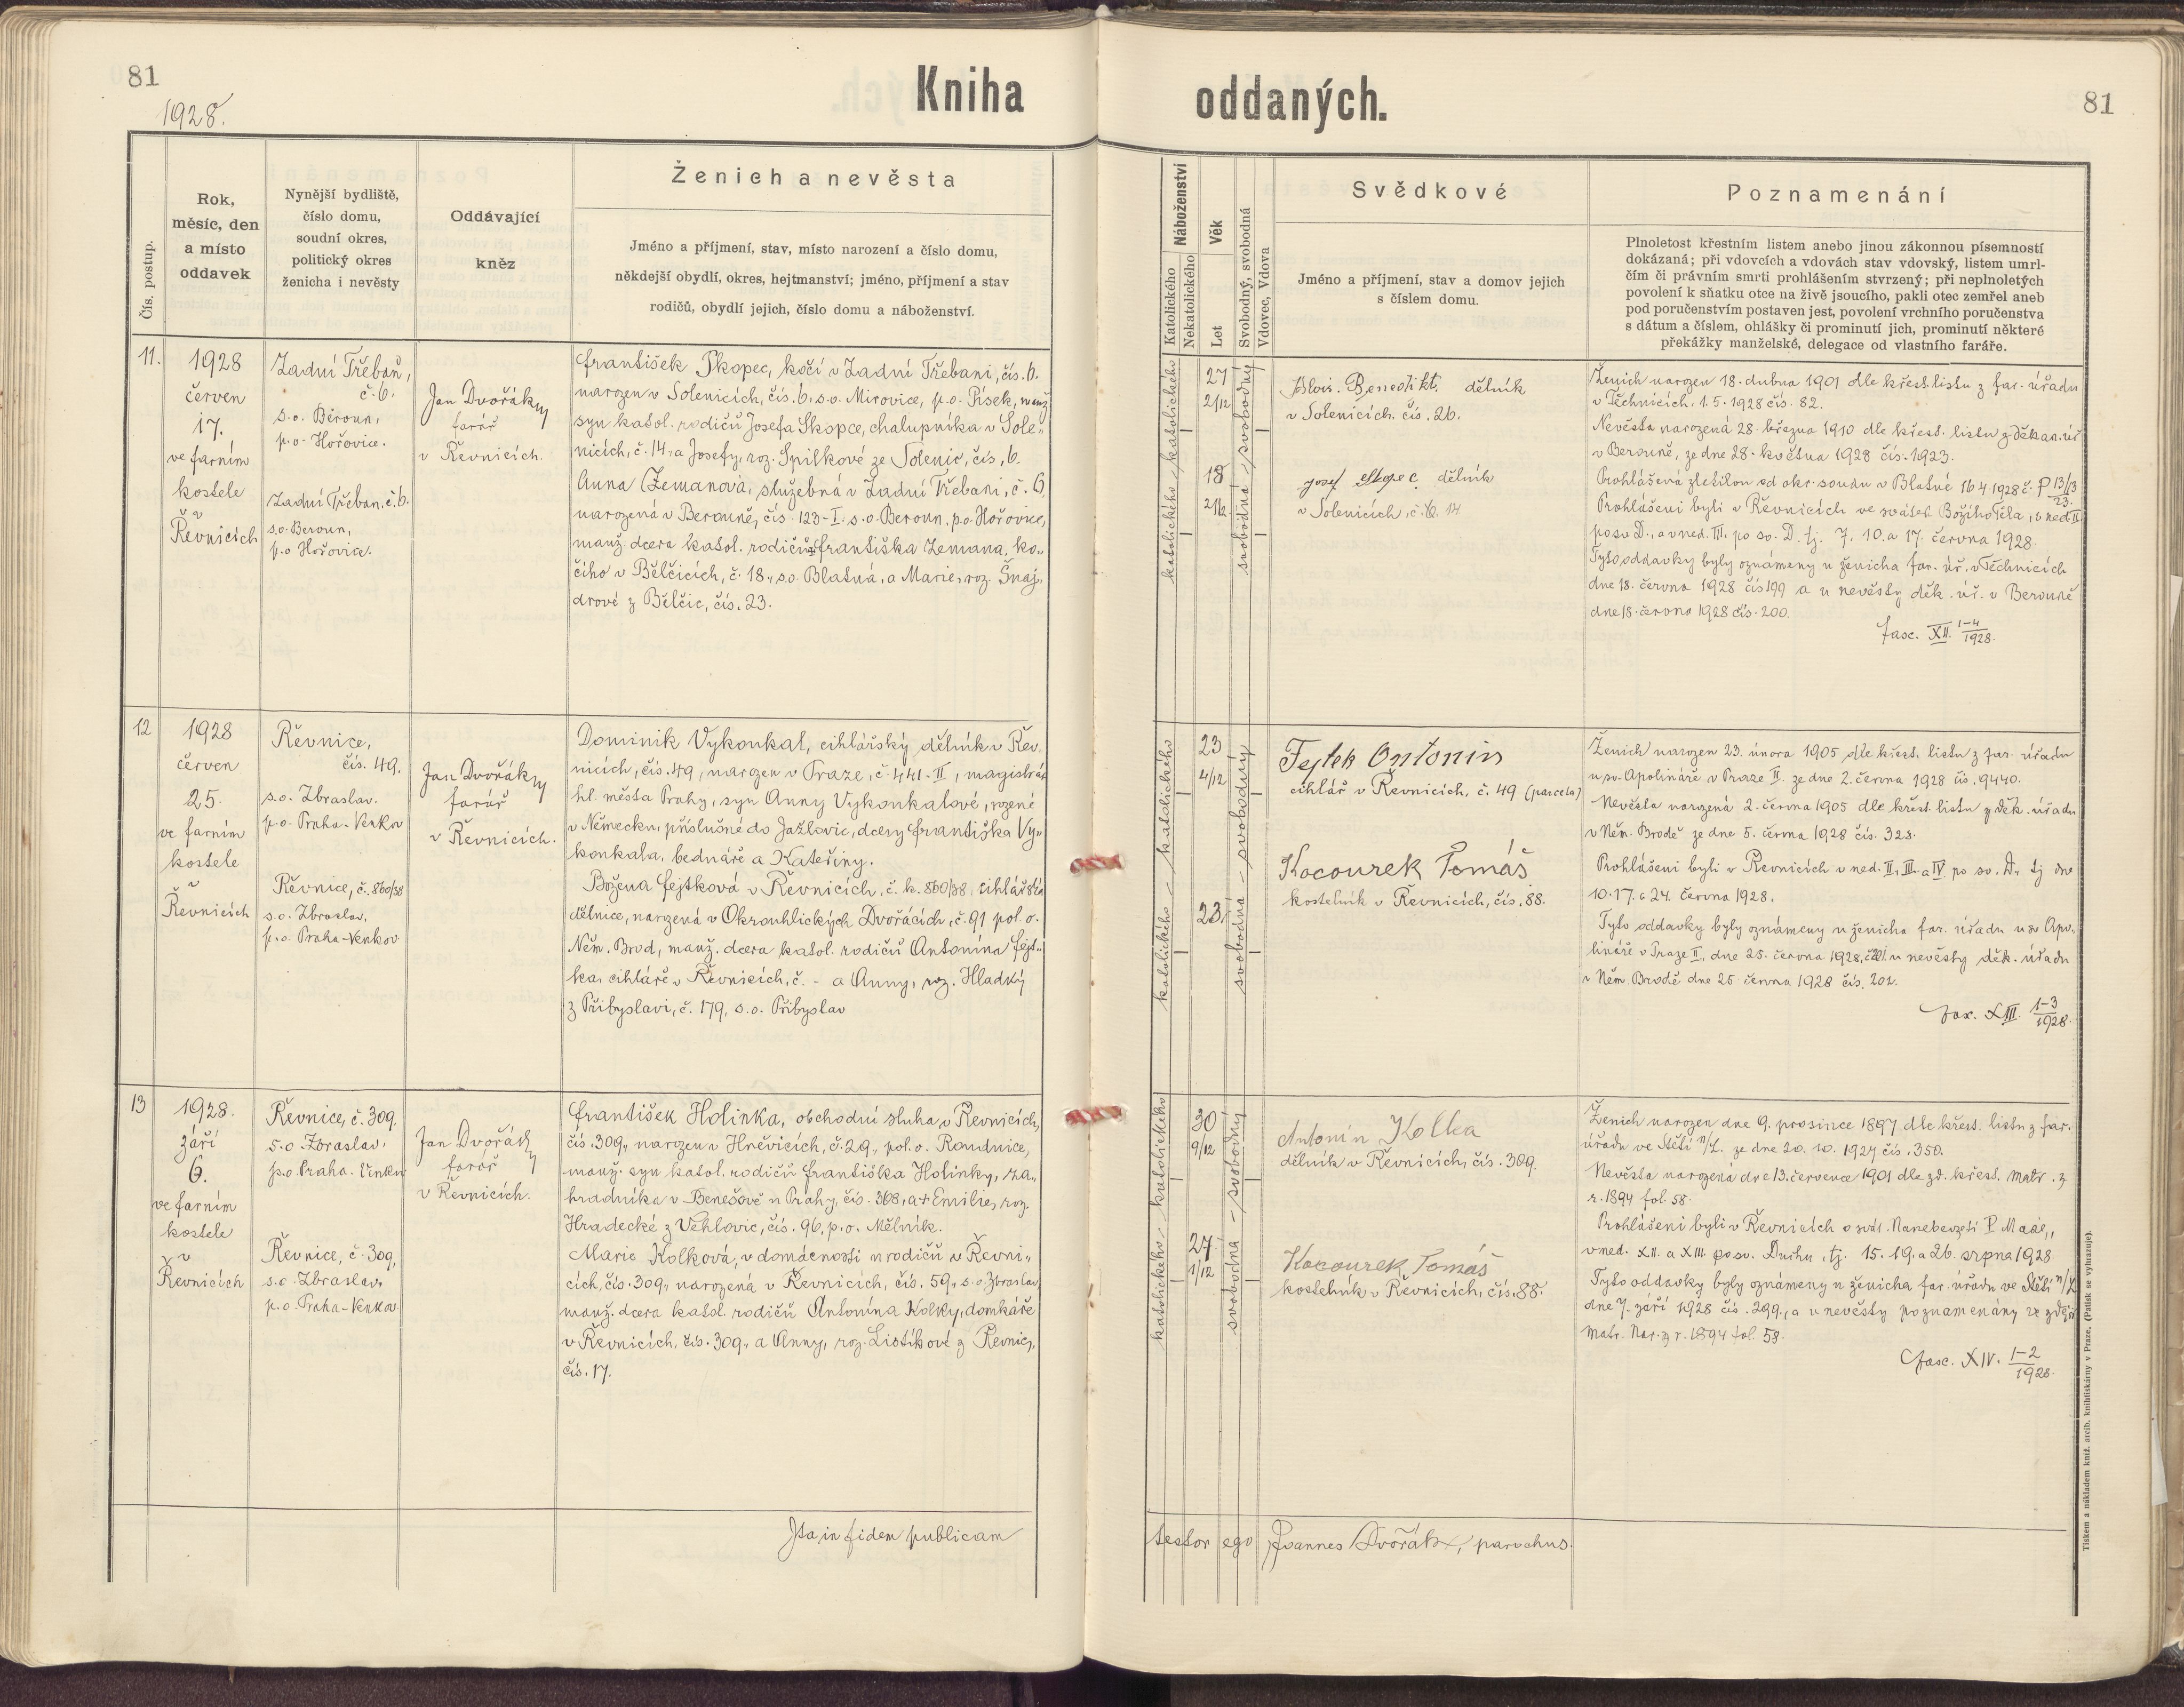 81
1928.
Kniha
oddaných.
81
Čís. postup.
Rok,
měsíc, den
a místo
oddavek
Nynější bydliště,
číslo domu,
soudní okres,
politický okres
ženicha i nevěsty
Oddávající
kněz
Ženich a nevěsta
Jméno a příjmení, stav, místo narození a číslo domu,
někdejší obydlí, okres, hejtmanství; jméno, příjmení a stav
rodičů, obydlí jejich, číslo domu a náboženství.
Náboženství
Katolického
Nekatolického
Věk
Let
Svobodný, svobodná
Vdovec, Vdova
Svědkové
Jméno a příjmení, stav a domov jejich
s číslem domu.
Poznamenání
Plnoletost křestním listem anebo jinou zákonnou písemností
dokázaná; při vdovcích a vdovách stav vdovský, listem umrl-
čím či právním smrti prohlášením stvrzený; při neplnoletých
povolení k sňatku otce na živě jsoucího, pakli otec zemřel aneb
pod poručenstvím postaven jest, povolení vrchního poručenstva
s dátum a číslem, ohlášky či prominutí jich, prominutí některé
překážky manželské, delegace od vlastního faráře.
11.
1928
červen
17.
ve farním
kostele
v
Řevnicích
Zadní Třebaň,
č. 6.
s.o. Beroun,
p.o. Hořovice.
Zadní Třebaň, č. 6.
s.o. Beroun,
p.o Hořovice.
Jan Dvořák
farář
v Řevnicích.
František Skopec, kočí v Zadní Třebani, čís. 6.
narozen v Solenicích, čís. 6, s.o. Mirovice, p.o. Písek, manž
syn katol. rodičů Josefa Skopce, chalupníka v Sole„
nicích, č. 14, a Josefy, roz. Spilkové ze Solenic, čís. 6.
Anna Zemanova, služebná v Zadní Třebani, č. 6,
narozená v Berouně, čís. 123-I. s.o. Beroun, p.o. Hořovice,
manž. dcera katol. rodičů Františka Zemana, ko„
čího v Bělčicích, č. 18, s.o. Blatná, a Marie, roz. Šnaj„
drové z Bělčic, čís. 23.
katolického - katolického
27
2/12
18
2/12
svobodná - svobodný
Alois. Benedikt. dělník
v Solenicích. čís. 26.
Josef Skopec dělník
v Solenicích, č. 14
Ženich narozen 18. dubna 1901 dle křest. listu z far. úřadu
v Těchnicích, 1. 5. 1928 čís. 82.
Nevěsta narozená 28. března 1910 dle křest. listu z děkan. úř
v Berouně, ze dne 28. května 1928 čís. 1923.
Prohlášená zletilou od okr. soudu v Blatné 16 4 1928 č. P 13/13
23.
Prohlášeni byli v Řevnicích ve svátek Božího Těla, v ned. II
po sv. D., a v ned. III. po sv. D. tj. 7. 10. a 17. června 1928.
Tyto oddavky byly oznámeny u ženicha far. úř. v Těchnicích
dne 18. června 1928 čís 199 a u nevěsty děk. úř. v Berouně
dne 18. června 1928 čís. 200.
fasc. XII. 1-4
1928.
12
1928
červen
25.
ve farním
kostele
v
Řevnicích
Řevnice,
čís. 49.
s.o. Zbraslav.
p.o. Praha-Venkov
Řevnice, č. 860/38
s.o. Zbraslav,
p.o. Praha-Venkov
Jan Dvořák
farář
v Řevnicích.
Dominik Vykoukal, cihlářský dělník v Řev„
nicích, čís. 49, narozen v Praze, č. 441-II, magistrát
hl. města Prahy, syn Anny Vykoukalové, rozené
v Německu, příslušné do Jažlovic, dcery Františka Vy„
koukala, bednáře a Kateřiny.
Božena Fejtková v Řevnicích, č. k. 860/38, cihlářská
dělnice, narozená v Okrouhlických Dvořácích, č. 91 pol. o.
Něm. Brod, manž. dcera katol. rodičů Antonína Fejt„
ka, cihláře v Řevnicích, č. - a Anny, roz. Hladký
z Přibyslavi, č. 179, s.o. Přibyslav
katolického - katolického
23
4/12
23,
svobodná - svobodný
Fejtek Antonín
cihlář v Řevnicích, č. 49 (parcela)
Kocourek Tomáš
kostelník v Řevnicích, čís. 88.
Ženich narozen 23. února 1905 dle křest. listu z far. úřadu
u sv. Apolináře v Praze II. ze dne 2. června 1928 čís. 9440.
Nevěsta narozená 2. června 1905 dle křest. listu z děk. úřadu
v Něm. Brodě ze dne 5. června 1928 čís. 328.
Prohlášeni byli v Řevnicích v ned. II, III. a IV po sv. D., tj dne
10. 17. a 24. června 1928.
Tyto oddavky byly oznámeny u ženicha far. úřadu u sv. Apo„
lináře v Praze II., dne 25. června 1928, č. 201. u nevěsty děk. úřadu
v Něm. Brodě dne 25 června 1928 čís. 202.
fasc. XIII. 1-3
1928.
13
1928.
září
6.
ve farním
kostele
v
Řevnicích
Řevnice, č. 309.
s.o. Zbraslav,
p.o Praha-Venkov
Řevnice, č. 309,
s.o. Zbraslav,
p.o. Praha-Venkov
Jan Dvořák
farář
v Řevnicích.
František Holinka, obchodní sluha v Řevnicích,
čís. 309, narozen v Hněvicích, č. 29, pol. o. Roudnice,
manž. syn katol. rodičů Františka Holinky, za„
hradníka v Benešově u Prahy, čís. 368, a + Emilie, roz.
Hradecké z Vehlovic, čís. 96, p.o. Mělník.
Marie Kolková, v domácnosti u rodičů v Řevni„
cích, čís. 309, narozená v Řevnicích, čís. 59, s.o. Zbraslav,
manž. dcera katol. rodičů Antonína Kolky, domkáře
v Řevnicích, čís. 309, a Anny, roz. Lístíkové z Řevnic,
čís. 17.
katolického - katolického
30
9/12
27
1/12
svobodná - svobodný
Antonín Kolka
dělník v Řevnicích, čís. 309.
Kocourek Tomáš
kostelník v Řevnicích, čís. 88.
Ženich narozen dne 9. prosince 1897 dle křest. listu z far.
úřadu ve Štětí n/L. ze dne 20. 10. 1927 čís. 350.
Nevěsta narozená dne 13. července 1901 dle zd. křest. matr. z
r. 1894 fol 58.
Prohlášeni byli v Řevnicích o svát. Nanebevzetí P. Marie,
v ned. XII. a XIII. po sv. Duchu, tj. 15. 19. a 26. srpna 1928.
Tyto oddavky byly oznámeny u ženicha far. úřadu ve Štětí n/L
dne 7. září 1928 čís. 299, a u nevěsty poznamenány ve zdejší
matr. Nar. z r. 1894 fol. 58.
fasc. XIV. 1-2
1928.
Ita in fidem publicam
testor ego Joannes Dvořák, parochus.
Tiskem a nákladem kníž. arcib. knihtiskárny v Praze. (Patisk se vyhrazuje).